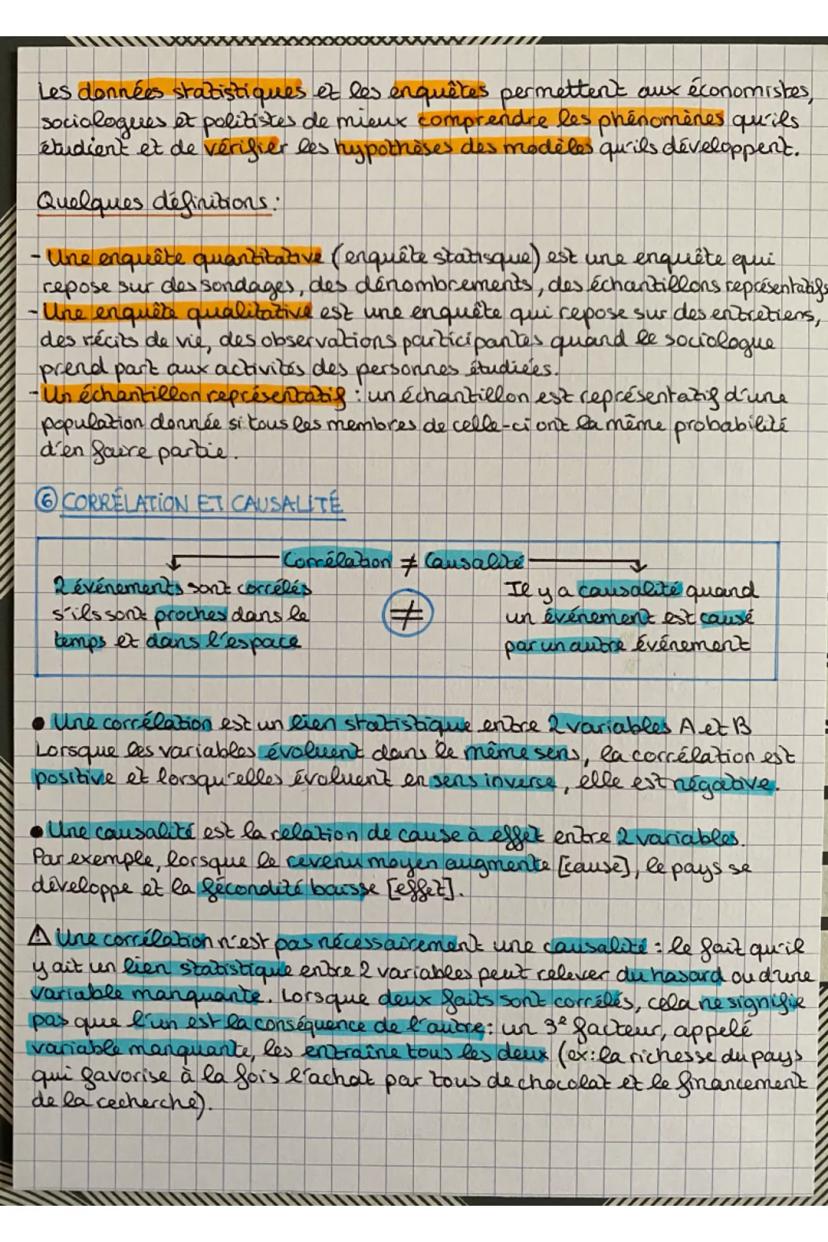 Les données statistiques et les enquêtes permettent aux économistes,
sociologues et politistes de mieux comprendre les phénomènes qu'ils
étudient et de vérifier les hypothèses des modèles qu'ils développent.
Quelques définitions :
- Une enquête quantitative (enquête statisque) est une enquête qui
repose sur des sondages, des dénombrements, des échantillons représentatifs
- Une enquête qualitative est une enquête qui repose sur des entretiens,
des récits de vie, des observations participantes quand le sociologue
prend part aux activités des personnes étudiées.
- Un échantillon représentatif : un échantillon est représentatif d'une
population donnée si tous les membres de celle-ci ont la même probabilité
d'en faire partie.
⑥ CORRÉLATION ET CAUSALITÉ
Corrélation ≠ Causalité
2 événements sont corrélés
s'ils sont proches dans le
temps et dans l'espace
≠
Il y a causalité quand
un événement est causé
par un autre événement
● Une corrélation est un lien statistique entre 2 variables A et B
Lorsque les variables évoluent dans le même sens, la corrélation est
positive et lorsqu'elles évoluent en sens inverse, elle est négative.
● Une causalité est la relation de cause à effet entre 2 variables.
Par exemple, lorsque le revenu moyen augmente [cause], le pays se
développe et la fécondité baisse [effet].
⚠ Une corrélation n'est pas nécessairement une causalité : le fait qu'il
y ait un lien statistique entre 2 variables peut relever du hasard ou d'une
variable manquante. Lorsque deux faits sont corrélés, cela ne signifie
pas que l'un est la conséquence de l'autre : un 3e facteur, appelé
variable manquante, les entraîne tous les deux (ex: la richesse du pays
qui favorise à la fois l'achat par tous de chocolat et le financement
de la cecherche).